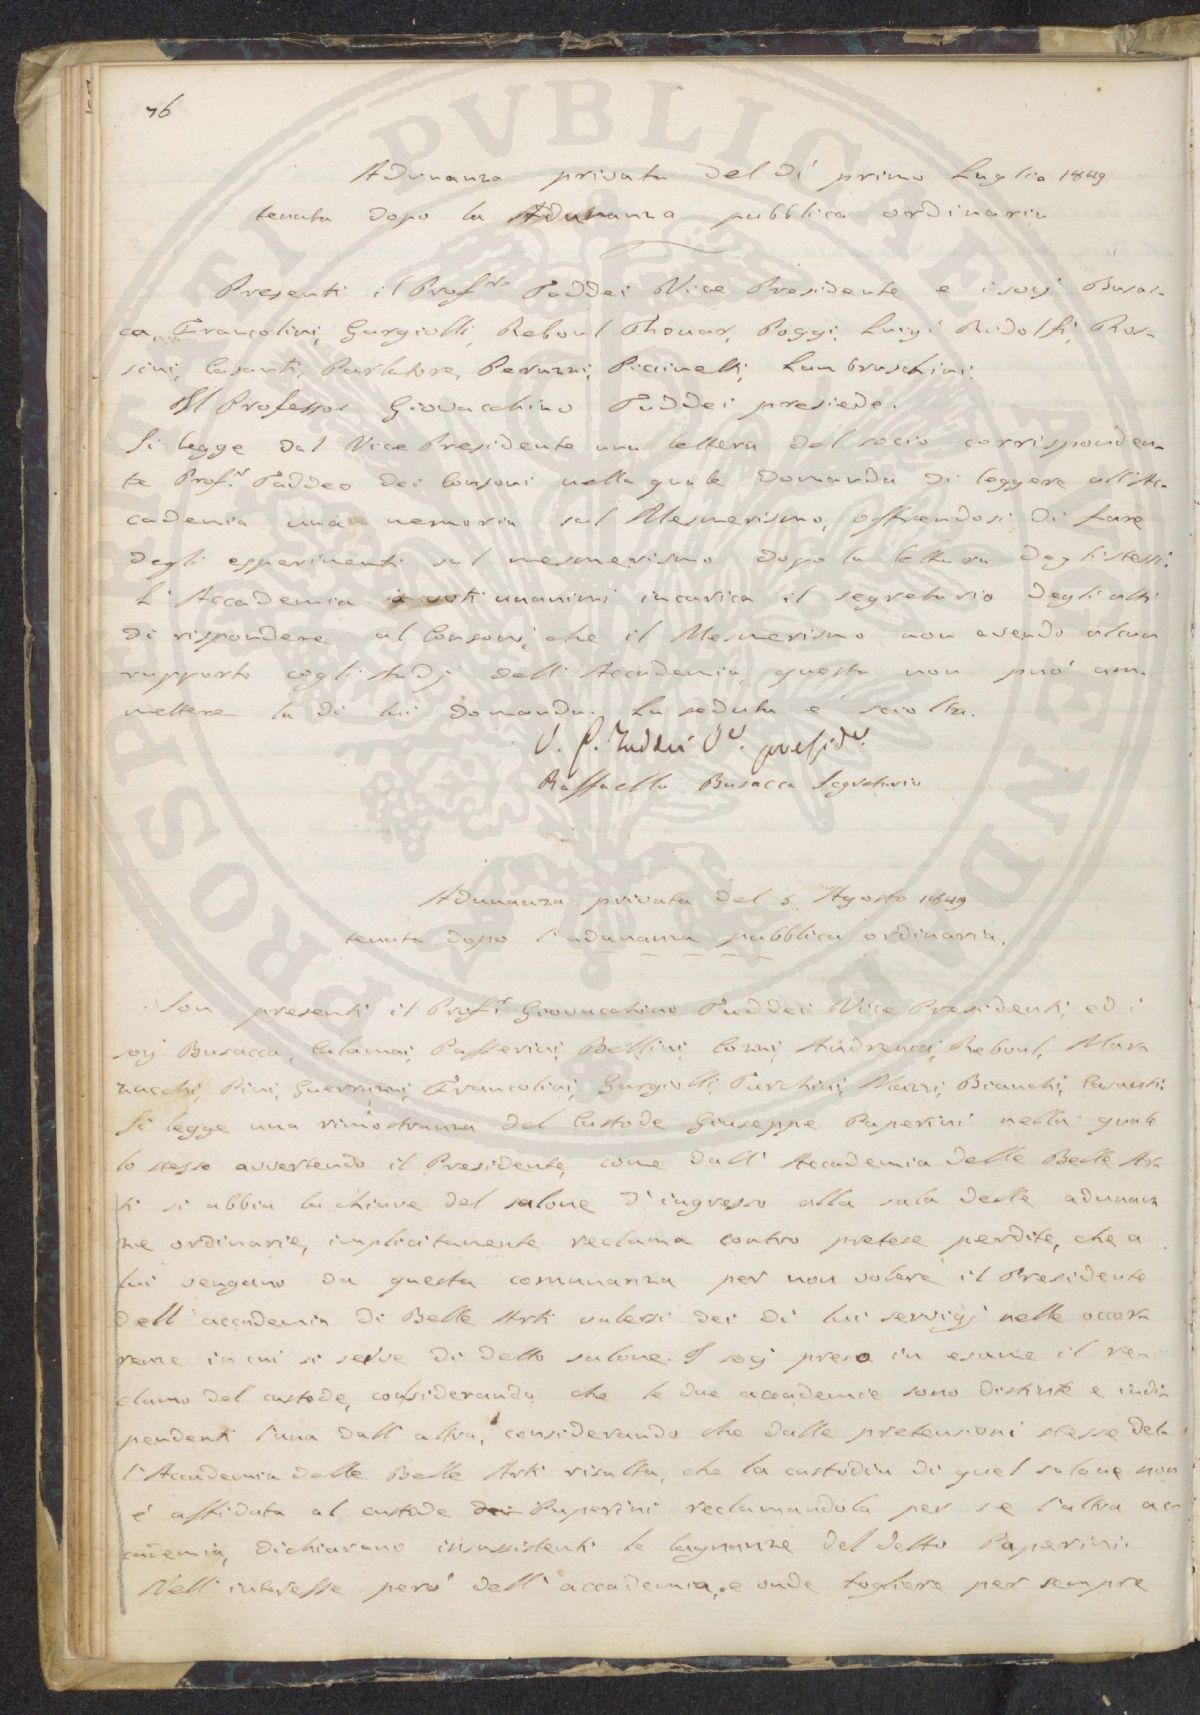 76
Adunanza privata del dì primo Luglio 1849
tenuta dopo la Adunanza pubblica ordinaria
Presenti il Prof.re Taddei Vice Presidente e i socj Busac-
ca, Francolini, Gargiolli, Reboul, Thouar, Poggi, Luigi Ridolfi, Ros-
sini, Casanti, Parlatore, Peruzzi, Piccinetti, Lambruschini.
Il Professor Giovacchino Taddei presiede.
Si legge dal Vice Presidente una lettera del socio corrisponden-
te Prof.r Taddeo dei Consoni nella quale domanda di leggere all'Ac-
cademia una memoria sul Mesmerismo, offrendosi di fare
degli esperimenti sul mesmerismo dopo la lettura degli stessi.
L'Accademia a voti unanimi incarica il segretario degli atti
di rispondere al Consoni, che il Mesmerismo non avendo alcun
rapporto cogli studj dell'Accademia, questa non può am-
mettere la di lui domanda. La seduta è sciolta.
V. P. Taddei V.e presid.e
Raffaello Busacca Segretario
Adunanza privata del 5 Agosto 1849
tenuta dopo l'adunanza pubblica ordinaria.
Son presenti il Prof.r Giovacchino Taddei Vice Presidenti, ed i
socj Busacca, Calamai, Passerini, Bellini, Cozzi, Andreucci, Reboul, Mara
zucchi, Pini, Guerrazzi, Francolini, Gargiolli, Turchini, Mazzi, Bianchi, Casanti.
Si legge una rimostranza del Custode Giuseppe Paperini nella quale
lo stesso avvertendo il Presidente, come dall'Accademia delle Belle Ar-
ti si abbia la chiave del salone d'ingresso alla sala delle adunan
ze ordinarie, implicitamente reclama contro pretese perdite, che a
lui vengano da questa comunanza per non volere il Presidente
dell'accademia di Belle Arti valersi dei di lui servigj nelle occor-
renze in cui si serve di detto salone. I socj preso in esame il re-
clamo del custode, considerando che le due accademie sono distinte e indi-
pendenti l'una dall'altra, considerando che dalle pretensioni stesse del-
l'Accademia delle Belle Arti risulta, che la custodia di quel salone non
è affidata al custode Paperini reclamandola per se l'altra ac-
cademia, dichiarano insussistenti le lagnanze del detto Paperini.
Nell'interesse però dell'accademia, e onde togliere per sempre